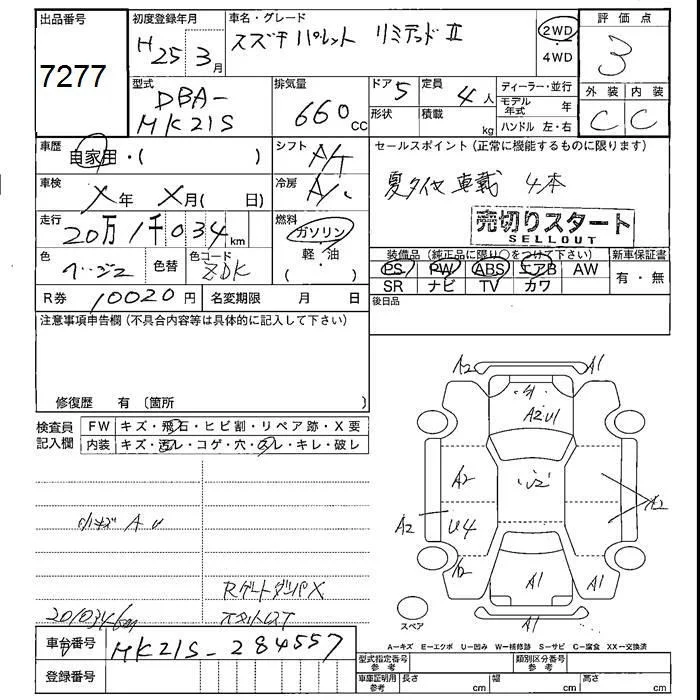 出品番号
7277
初度登録年月
H 25年 3月
車名・グレード
スズキ パレット リミテッド II
2WD
・
4WD
評価点
3
外装 内装
C C
型式
DBA-
MK21S
排気量
660cc
ドア 5
形状
定員 4人
積載 kg
ディーラー・並行
モデル年式 年
ハンドル 左・右
車歴
自家用・( )
シフト
A/T
セールスポイント (正常に機能するものに限ります)
夏タイヤ 車載 4本
車検
X年 X月( 日)
冷房
A/C
売切りスタート
SELLOUT
走行
20万1千034km
燃料
ガソリン
・
軽・油
( )
色
ベージュ
色替
色コード
ZDK
装備品 (純正品に限り○をつけて下さい)
PS PW ABS エアB AW
SR ナビ TV カワ
新車保証書
有・無
R券 10020円
名変期限 月 日
後日品
注意事項申告欄 (不具合内容等は具体的に記入して下さい)
修復歴 有 〔箇所 〕
検査員
記入欄
FW キズ・飛石・ヒビ割・リペア跡・X要
内装 キズ・汚レ・コゲ・穴・スレ・キレ・破レ
小キズ A U
RゲートダンパX
201034km
A2 A1
A2U1
A2
A2 U4
A2
A1 A1
A1
スペア
A-キズ E-エクボ U-凹み W-補修跡 S-サビ C-腐食 XX-交換済
車台番号
MK21S-284557
登録番号
型式指定番号
参考
類別区分番号
参考
車庫証明用
参考
長さ cm
幅 cm
高さ cm